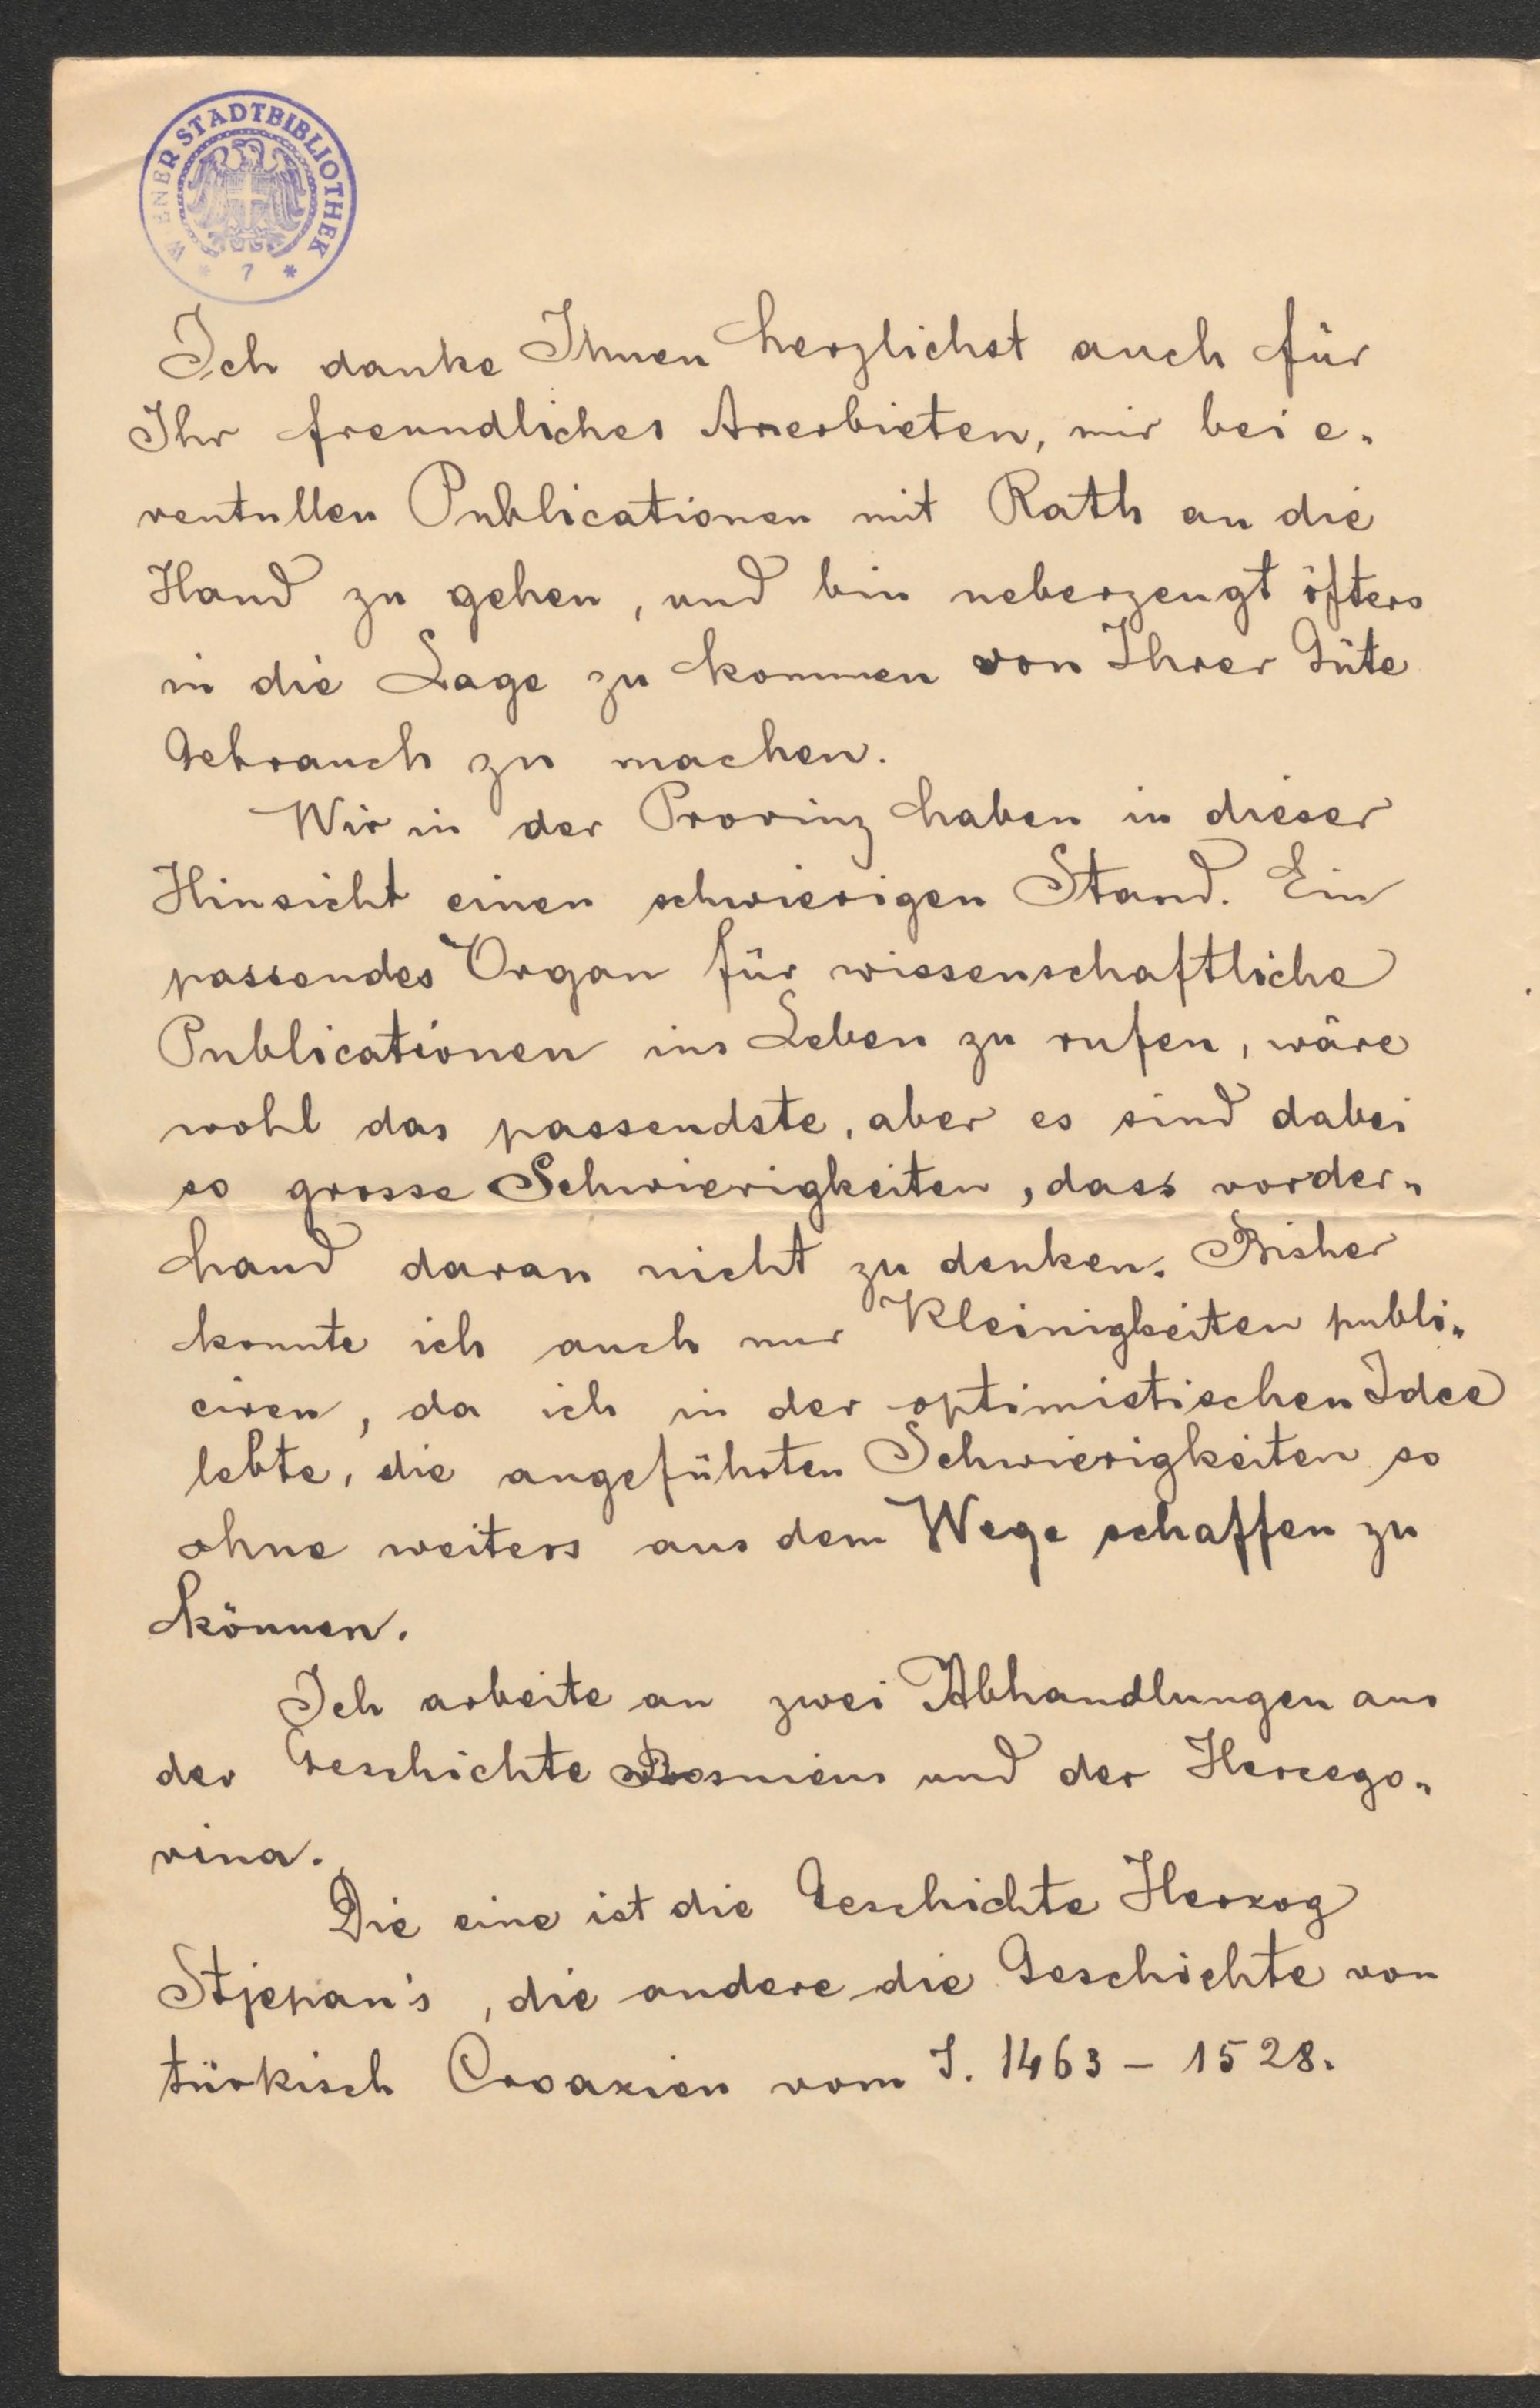 WIENER STADTBIBLIOTHEK
* 7 *
Ich danke Ihnen herzlichst auch für
Ihr freundliches Anerbieten, mir bei e-
ventullen Publicationen mit Rath an die
Hand zu gehen, und bin ueberzeugt öfters
in die Lage zu kommen von Ihrer Güte
Gebrauch zu machen.
Wir in der Provinz haben in dieser
Hinsicht einen schwierigen Stand. Ein
passendes Organ für wissenschaftliche
Publicationen ins Leben zu rufen, wäre
wohl das passendste, aber es sind dabei
so grosse Schwierigkeiten, dass vorder-
hand daran nicht zu denken. Bisher
konnte ich auch nur Kleinigkeiten publi-
ciren, da ich in der optimistischen Idee
lebte, die angeführten Schwierigkeiten so
ohne weiters aus dem Wege schaffen zu
können.
Ich arbeite an zwei Abhandlungen aus
der Geschichte Bosniens und der Hercego-
vina.
Die eine ist die Geschichte Herzog
Stjepan's, die andere die Geschichte von
türkisch Croazien vom J. 1463 - 1528.